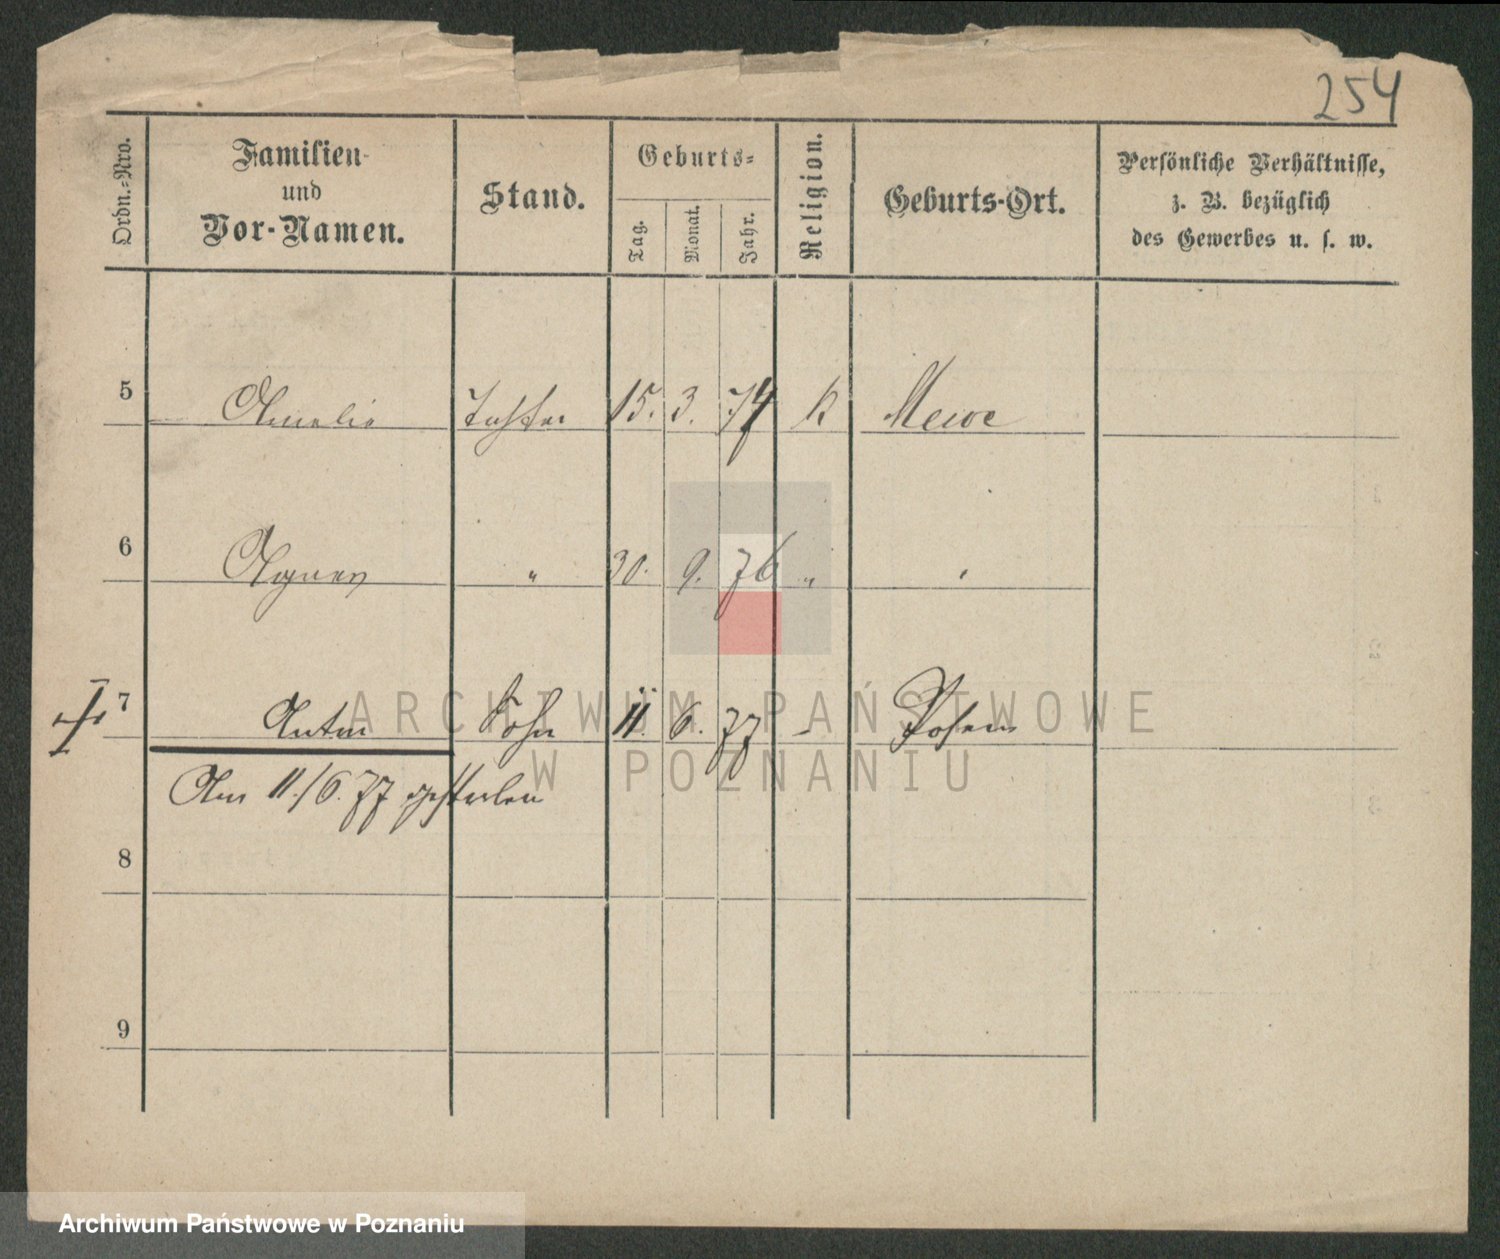 254
Ordn.-Nro.
Familien-
und
Vor-Namen.
Stand.
Geburts-
Tag.
Monat.
Jahr.
Religion.
Geburts-Ort.
Persönliche Verhältnisse,
z. B. bezüglich
des Gewerbes u. s. w.
5 Amelie Tochter 15. 3. 74 K Mewe
6 Agnes " 30. 9. 76 " "
7 Anton Sohn 11. 6. 77 - Posen
Am 11./6. 77 gestorben
8
9
ARCHIWUM PAŃSTWOWE
W POZNANIU
Archiwum Państwowe w Poznaniu